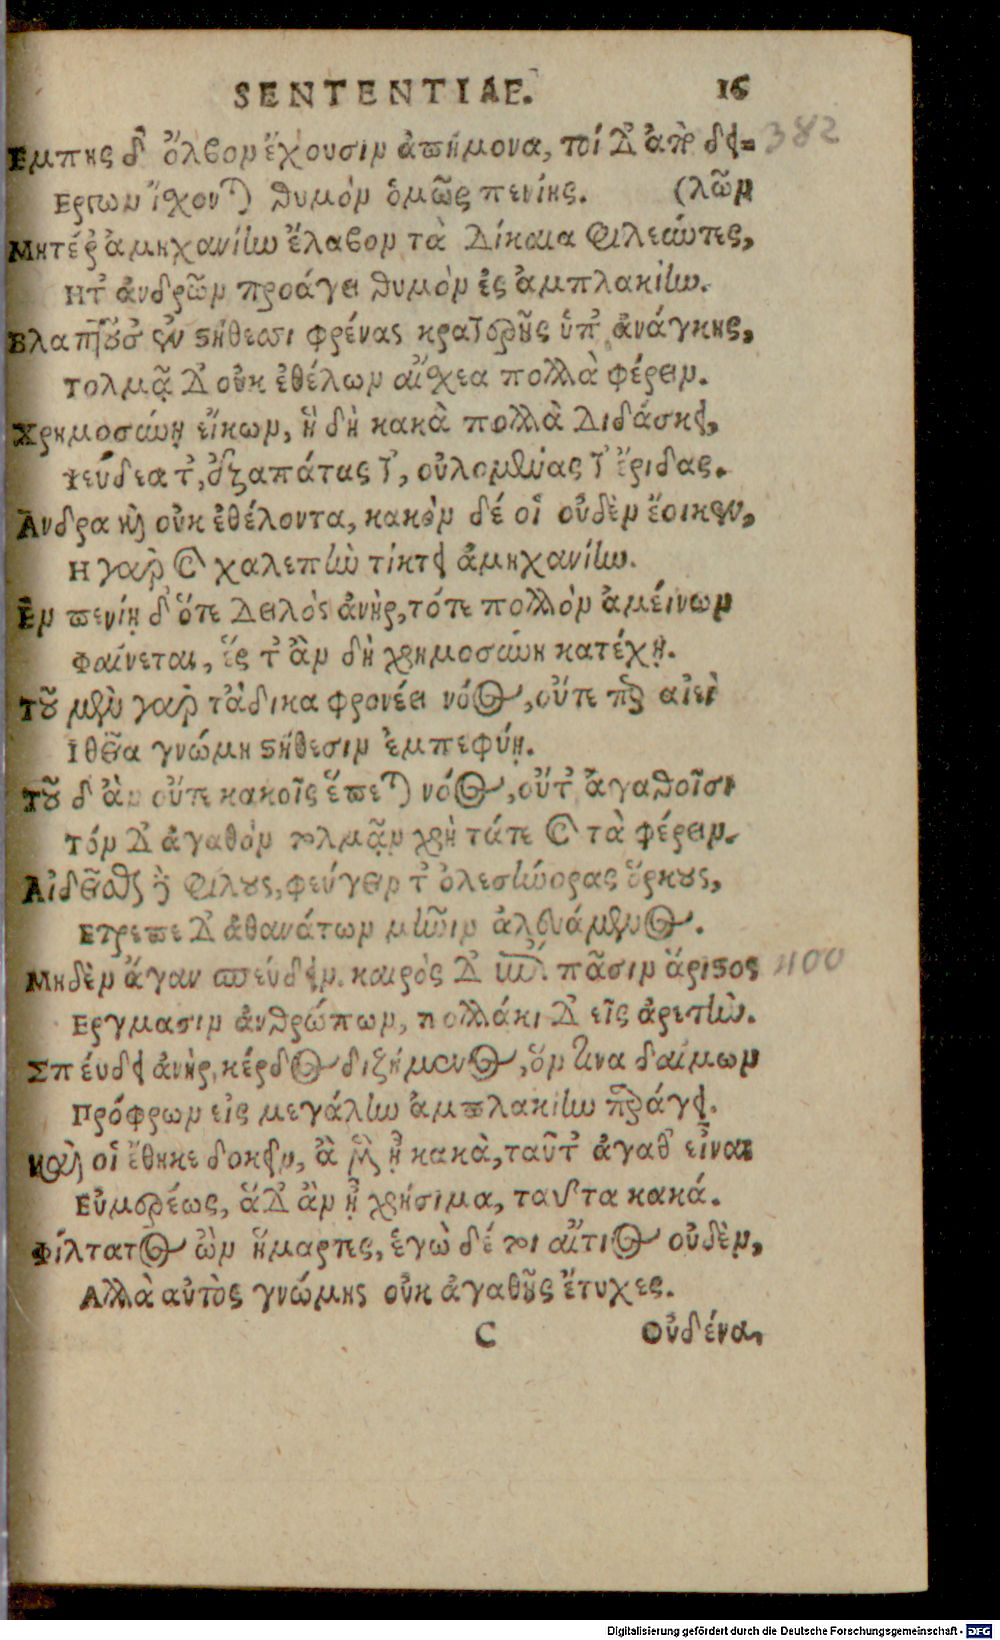 SENTENTIAE. 16
Εμπης δ' ὄλβον ἔχουσιν ἀπήμονα, τοὶ δ' ἀπὸ δει- 382
Εργων ἴσχονται θυμὸν ὁμῶς πενίης. (λῶν
Μητέρ' ἀμηχανίην ἔλαβον τὰ δίκαια φιλεῦντες,
Ητ' ἀνδρῶν προάγει θυμὸν ἐς ἀμπλακίην.
Βλαπτουσ' ἐν στήθεσσι φρένας κρατερῆς ὑπ' ἀνάγκης,
Τολμᾷ δ' οὐκ ἐθέλων αἴσχεα πολλὰ φέρειν.
Χρημοσύνῃ εἴκων, ἣ δὴ κακὰ πολλὰ διδάσκει,
Ψεύδεα τ', ἐξαπάτας τ', οὐλομένας τ' ἔριδας.
Ανδρα καὶ οὐκ ἐθέλοντα, κακὸν δέ οἱ οὐδὲν ἔοικεν,
Η γὰρ καὶ χαλεπὴν τίκτει ἀμηχανίην.
Εν πενίῃ δ' ὅτε δειλὸς ἀνὴρ, τότε πολλὸν ἀμείνων
Φαίνεται, εὖς τ' ἂν δὴ χρημοσύνη κατέχῃ.
Τοῦ μὲν γὰρ τἄδικα φρονέει νόος, οὔτε περ αἰεὶ
Ιθεῖα γνώμη στήθεσιν ἐμπεφύῃ.
Τοῦ δ' ἂν οὔτε κακοῖς ἕπεται νόος, οὔτ' ἀγαθοῖσι
Τόν δ' ἀγαθὸν τολμᾷν χρὴ τάτε καὶ τὰ φέρειν.
Αἰδεῖσθαι δὲ φίλους, φεύγειν τ' ὀλεσήνορας ὅρκους,
Ετρεπε δ' ἀθανάτων μῆνιν ἀλευάμενος.
Μηδὲν ἄγαν σπεύδειν. καιρὸς δ' ἐπὶ πᾶσιν ἄριστος 400
Εργμασιν ἀνθρώπων, πολλάκι δ' εἰς ἀρετὴν.
Σπεύδει ἀνὴρ, κέρδος διζήμενος, ὅν τινα δαίμων
Πρόφρων εἰς μεγάλην ἀμπλακίην παράγει.
Καὶ οἱ ἔθηκε δοκεῖν, ἃ μὲν ᾖ κακὰ, ταῦτ' ἀγαθ' εἶναι
Εὐμαρέως, ἃ δ' ἂν ᾖ χρήσιμα, ταῦτα κακά.
Φίλτατος ὢν ἥμαρτες, ἐγὼ δέ τοι αἴτιος οὐδὲν,
Αλλὰ αὐτὸς γνώμης οὐκ ἀγαθῆς ἔτυχες.
C Οὐδένα,
Digitalisierung gefördert durch die Deutsche Forschungsgemeinschaft - DFG